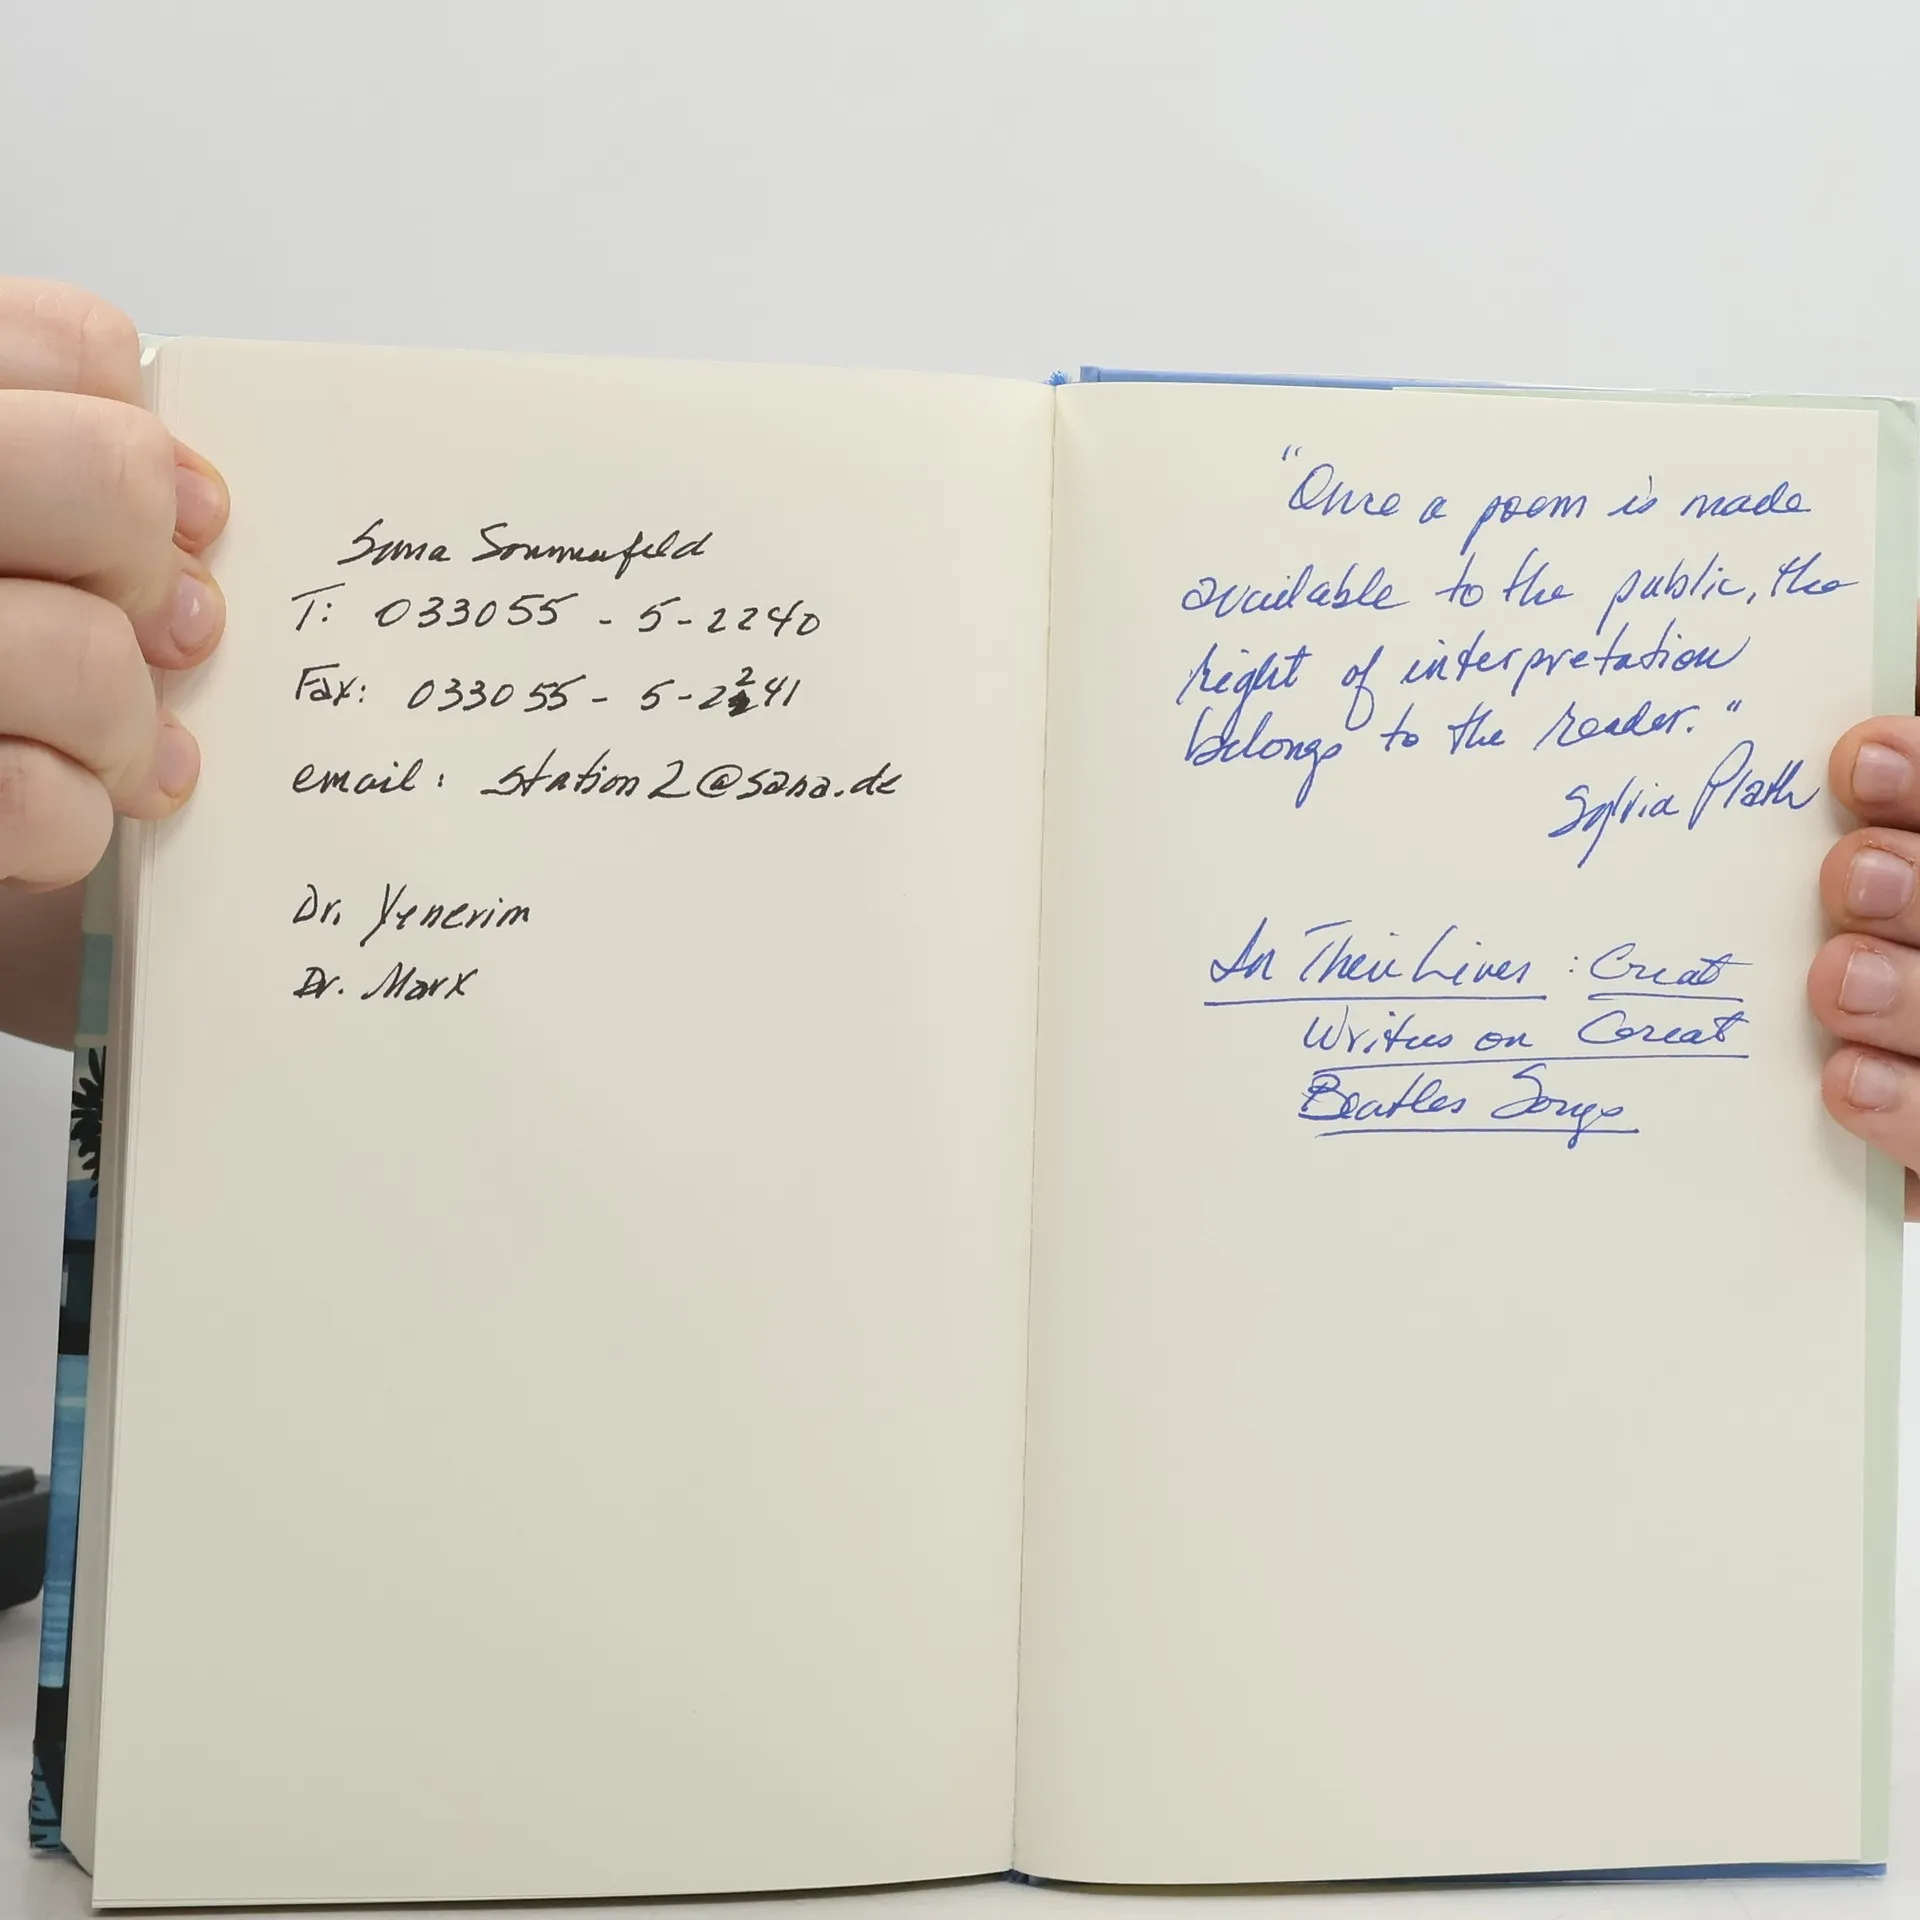 Sana Sommerfeld
T: 033055 - 5-2240
Fax: 033055 - 5-2241
email: station2@sana.de
Dr. Yenerim
Dr. Marx
"Once a poem is made
available to the public, the
right of interpretation
belongs to the reader."
Sylvia Plath
In Their Lives : Great
Writers on Great
Beatles Songs